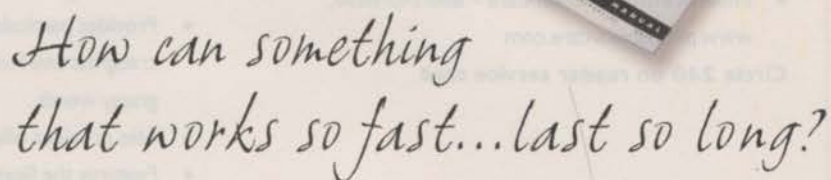 MANUAL
How can something
that works so fast...last so long?